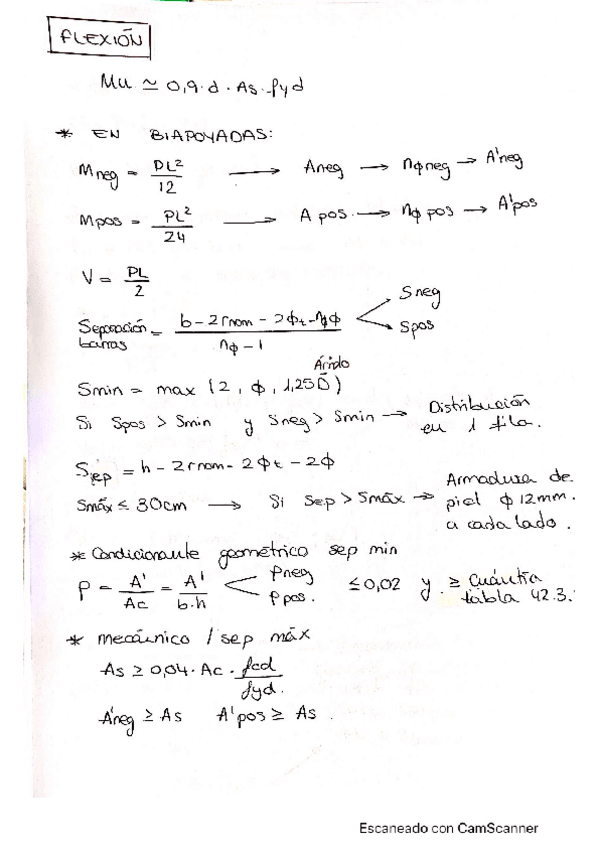 FLEXIÓN
Mu ≃ 0,9 · d · As · fyd
* EN BIAPOYADAS:
Mneg = PL²/12 → Aneg → nϕneg → A'neg
Mpos = PL²/24 → Apos → nϕpos → A'pos
V = PL/2
Separación barras = (b - 2rnom - 2ϕt - nϕϕ)/(nϕ - 1) < Sneg Spos
Árido
Smin = max (2, ϕ, 1,25D)
Si Spos > Smin y Sneg > Smin → Distribución en 1 fila.
Ssep = h - 2rnom - 2ϕt - 2ϕ
Smáx ≤ 30cm → Si Sep > Smáx → Armadura de piel ϕ 12mm. a cada lado.
* Condicionante geométrico sep min
ρ = A'/Ac = A'/b·h < ρneg ρpos. ≤ 0,02 y ≥ Cuántia tabla 42.3.
* mecánico / sep máx
As ≥ 0,04 · Ac · fcd/fyd.
A'neg ≥ As A'pos ≥ As.
Escaneado con CamScanner